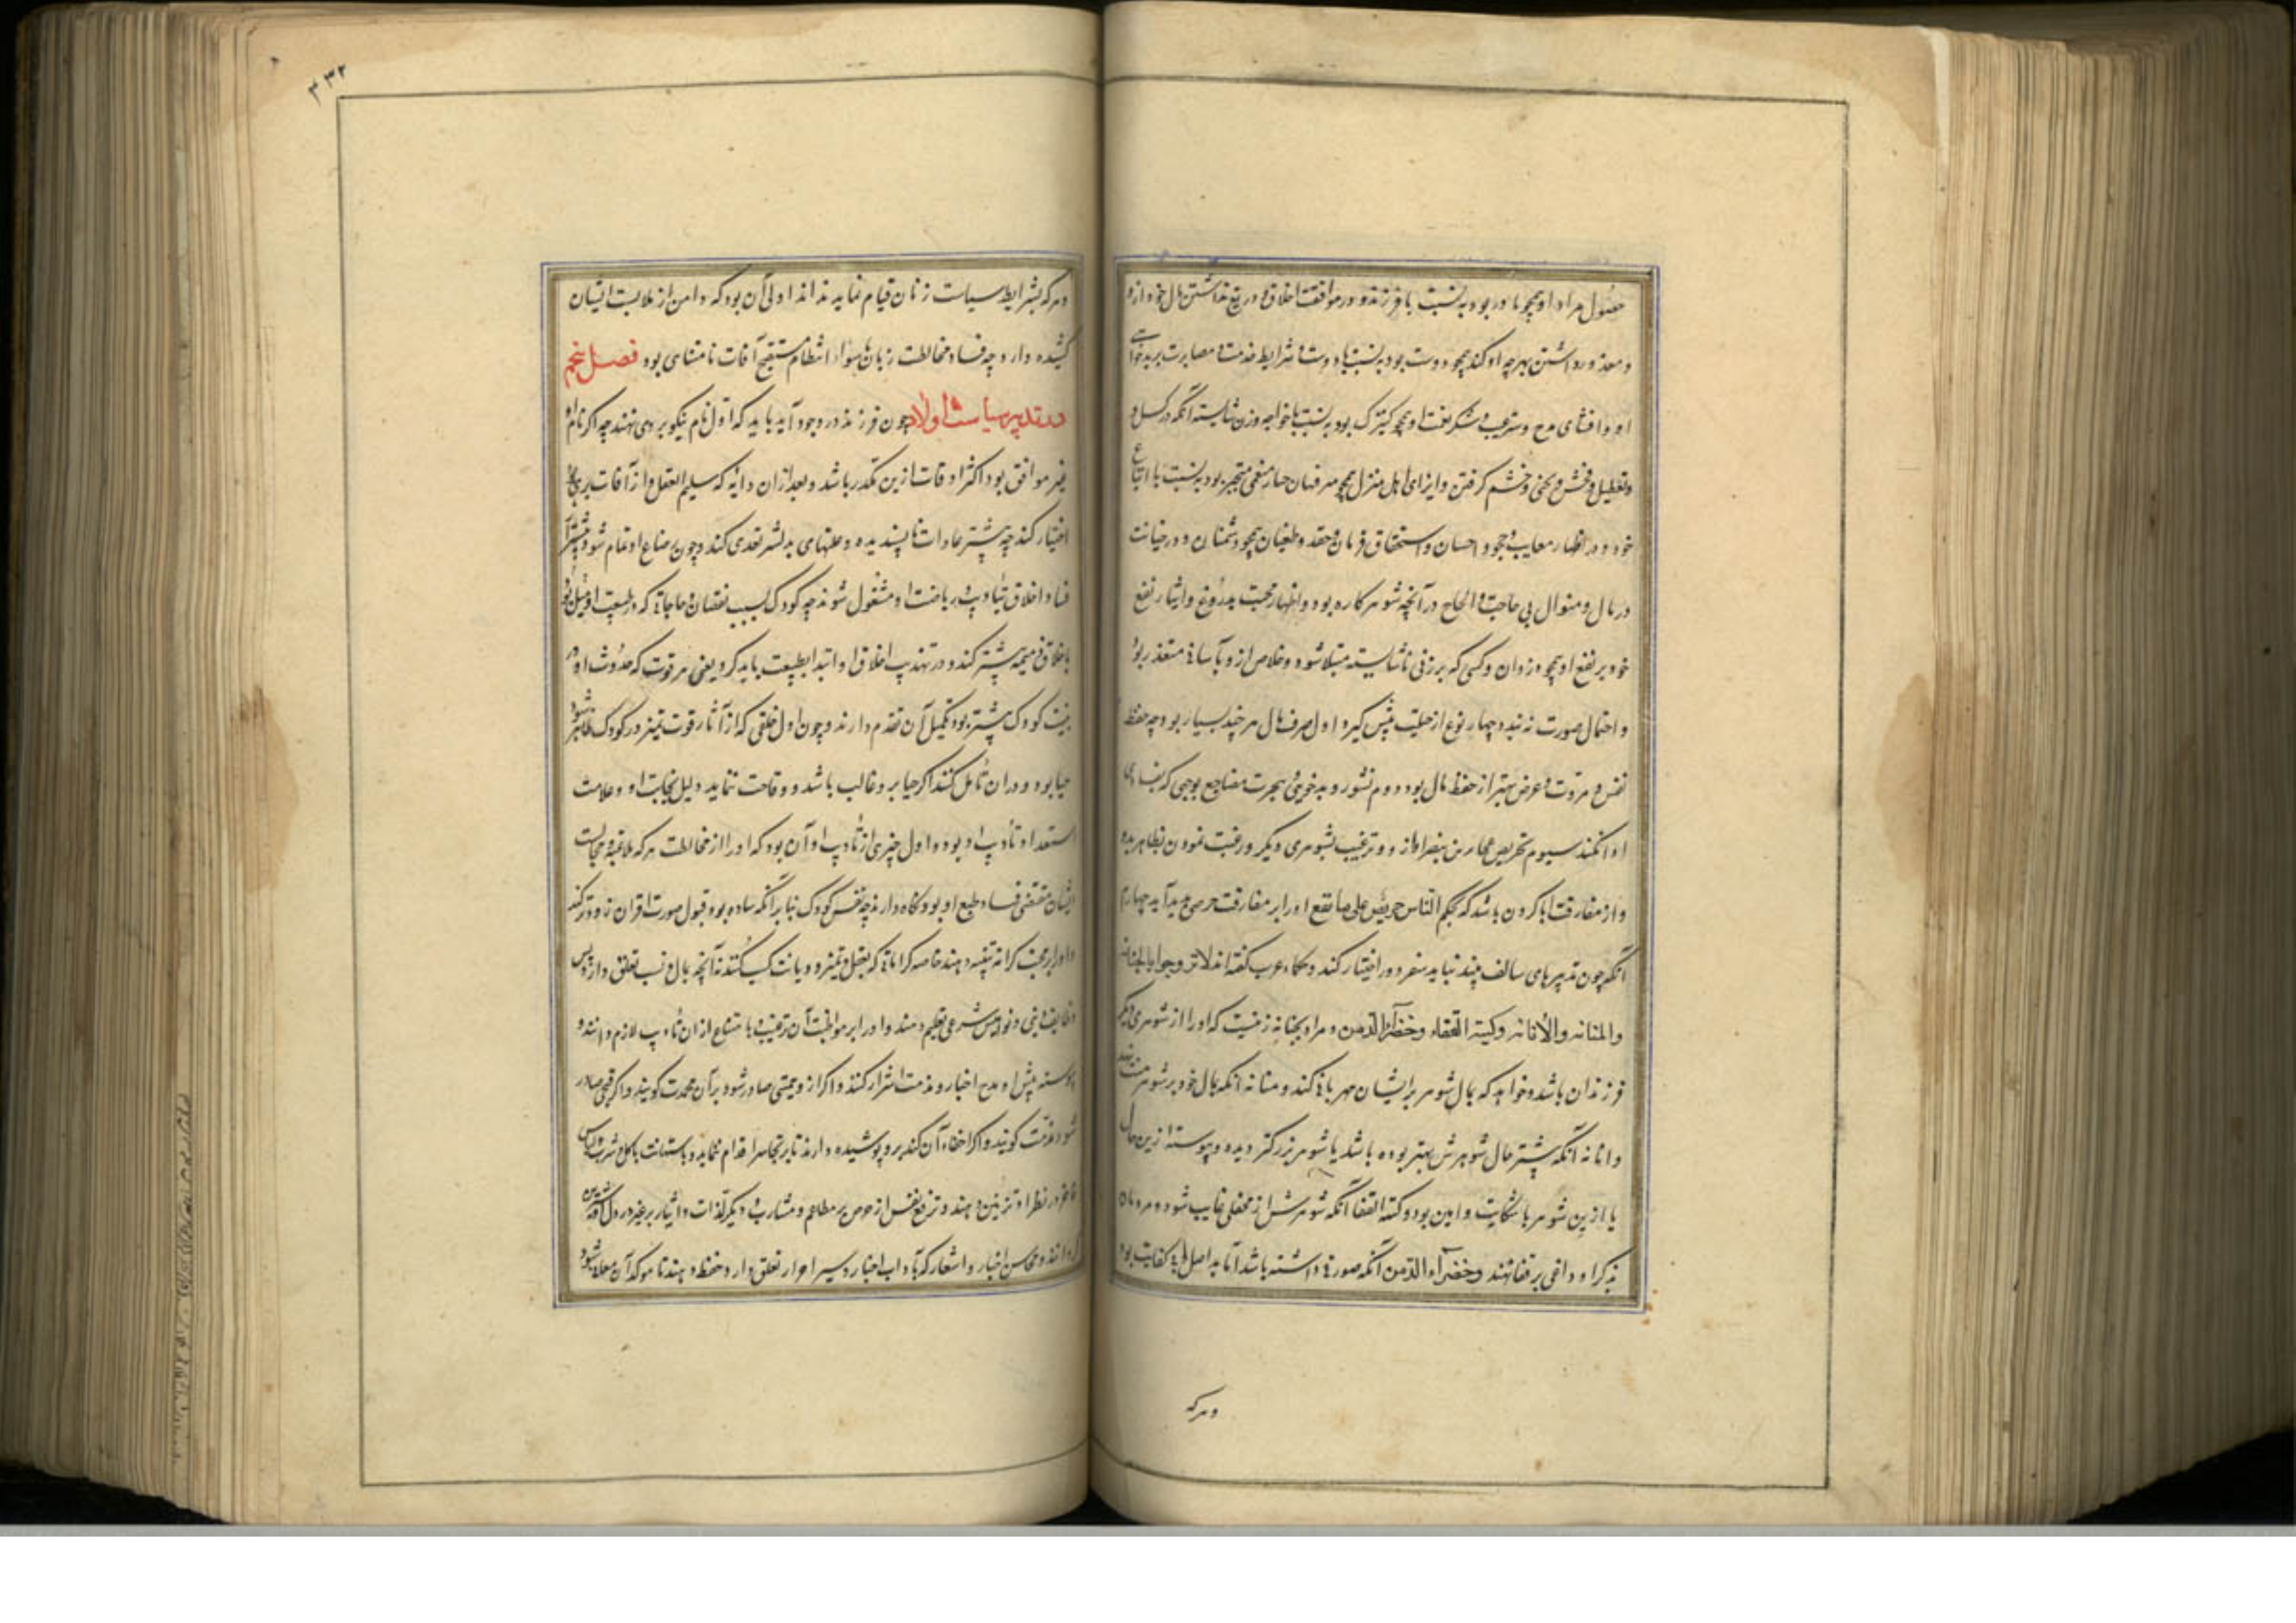 حصول مراد او همچو مادر بود به نسبت با فرزند و در موافقت اخلاق و دریغ نداشتن مال خود از و
و معذور داشتن بهر چه او کند همچو دوست بود به نسبت با دوست و شرایط خدمت و مصابرت بر بدخوایی
او و افشای مدح و ستر عیب و شکر نعت او همچو کنیزک بود به نسبت با خواجه و زن ناشایسته آنکه در کسل و
و تعطیل و فحش و تجنی و خشم گرفتن و ایزای اهل منزل همچو بود به نسبت با اتباع
خود و در اظهار معایب و جحود احسان و استحقاق و حقد و طغیان همچو دشمنان و در خیانت
در مال و سئوال بی حاجت و الحاح در آنچه شوهر کاره بود و اظهار محبت بدروغ و ایثار نفع
خود بر نفع او همچو دزدان و کسی که بر زنی ناشایسته مبتلا شود و خلاص از و بآسانی متعذر بود
و احتمال صورت نه بندد چهار نوع از حیلت پیش گیرد اول صرف مال هر چند بسیار بود چه حفظ
نفس و مروت و عرض بهتر از حفظ مال بود دوم نشوز و بدخویی و هجرت مضاجع بوجهی که بفسادی
ادا نکند سیوم تحریص عجایز بر تنفر او از و و ترغیب بشوهری دیگر و رغبت نمودن بظاهر بدو
و از مفارقت ابا کردن باشد که بحکم الناس حریص علی ما منع او را بر مفارقت حرص پدید آید چهارم
آنکه چون تدبیرهای سالف مفید نیاید سفر دور اختیار کند و حکماء عرب گفته اند لاتزوجوا بالحنانه
والمنانه والأنانه وکیته القفاء وخضرآء الدمن و مراد بحنانه زنیست که او را از شوهری دیگر
فرزندان باشد و خواهد که بمال شوهر بر ایشان مهربانی کند و منانه آنکه بمال خود بر شوهر منت نهد
و انانه آنکه پیشتر حال شوهرش بهتر بوده باشد یا شوهر بزرگتر دیده و پیوسته ازین حال
یا ازین شوهر با شکایت و انین بود و کیته القفا آنکه شوهرش از محفلی غایب شود و مردمان
بذکر او داغی بر قفا نهند و خضرآء الدمن آنکه صورتی داشته باشد اما بد اصل کفایت بود
و هر که
۴۳۲
و هر که بشرایط سیاست زنان قیام نماید نداند اولی آن بود که دامن از ملابست ایشان
کشیده دارد چه فساد مخالطت زنان با سوء انتظام مستتبع آفات نامتناهی بود فصل پنجم
در تدبیر سیاست اولاد چون فرزند در وجود آید باید که اول نام نیکو بر وی نهند چه اگر نام او
غیر موافق بود اکثر اوقات ازین مکدر باشد و بعد ازان دایه که سلیم العقل و از آفات بری بود
اختیار کند چه بیشتر عادات ناپسندیده و علتهای بد بشیر تعدی کند و چون رضاع او تمام شود پیشتر از
فساد اخلاق بتادیب و ریاضت او مشغول شوند چه کودک بسبب نقصان و حاجاتی که در طبیعت او بود میل
باخلاق ذمیمه بیشتر کند و در تهذیب اخلاق او ابتدا بطبیعت باید کرد یعنی هر قوت که حدوث او در
بنیت کودک پیشتر بود تکمیل آن تقدم دارند و چون اول خلقی که از آثار قوت تمیز در کودک ظاهر شود
حیا بود و دران تأمل کنند اگر حیا برو غالب باشد و وقاحت ننماید دلیل نجابت او و علامت
استعداد تأدیب او بود و اول چیزی از تأدیب او آن بود که او را از مخالطت هر که ملاعبه و مجالست
ایشان مقتضی فساد طبع او بود نگاه دارند چه نفس کودک بنابر آنکه ساده بود قبول صورت اقران زودتر کند
و او را بر محبت کرامت تنبیه دهند خاصه کراماتی که بعقل و تمیز و دیانت کسب کنند نه آنچه بمال و نسب تعلق دارد پس
وظایف دینی و نوامیس شرعی تعلیم دهند و او را بر مواظبت آن ترغیب و با متناع ازان تأدیب لازم دانند و
پیوسته پیش او مدح اخیار و مذمت اشرار کنند و اگر از و جمیلی صادر شود بر آن محمدت گویند و اگر قبحی صادر
شود مذمت گویند و اگر اخفاء آن کند برو پوشیده دارند تا بر تجاسر اقدام ننماید و باستهانت باکل و شرب و لباس
فاخر در نظر او تزیین دهند و ترفع نفس از حرص بر مطاعم و مشارب و دیگر لذات و ایثار بر غیر در دل او شیرین
گردانند و محاسن اخبار و اشعار که بآداب اخیار و سیر احرار تعلق دارد حفظ دهند تا موکد آن معانی شود